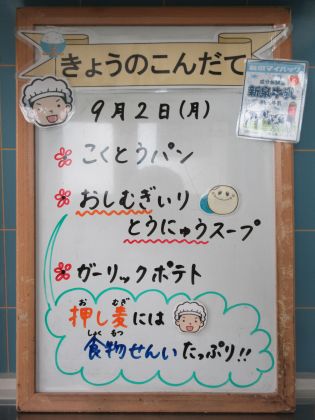 きょうのこんだて
9月2日(月)
こくとうパン
おしむぎいり
とうにゅうスープ
ガーリックポテト
お むぎ
押し麦には
しょく もつ
食物せんいたっぷり!!